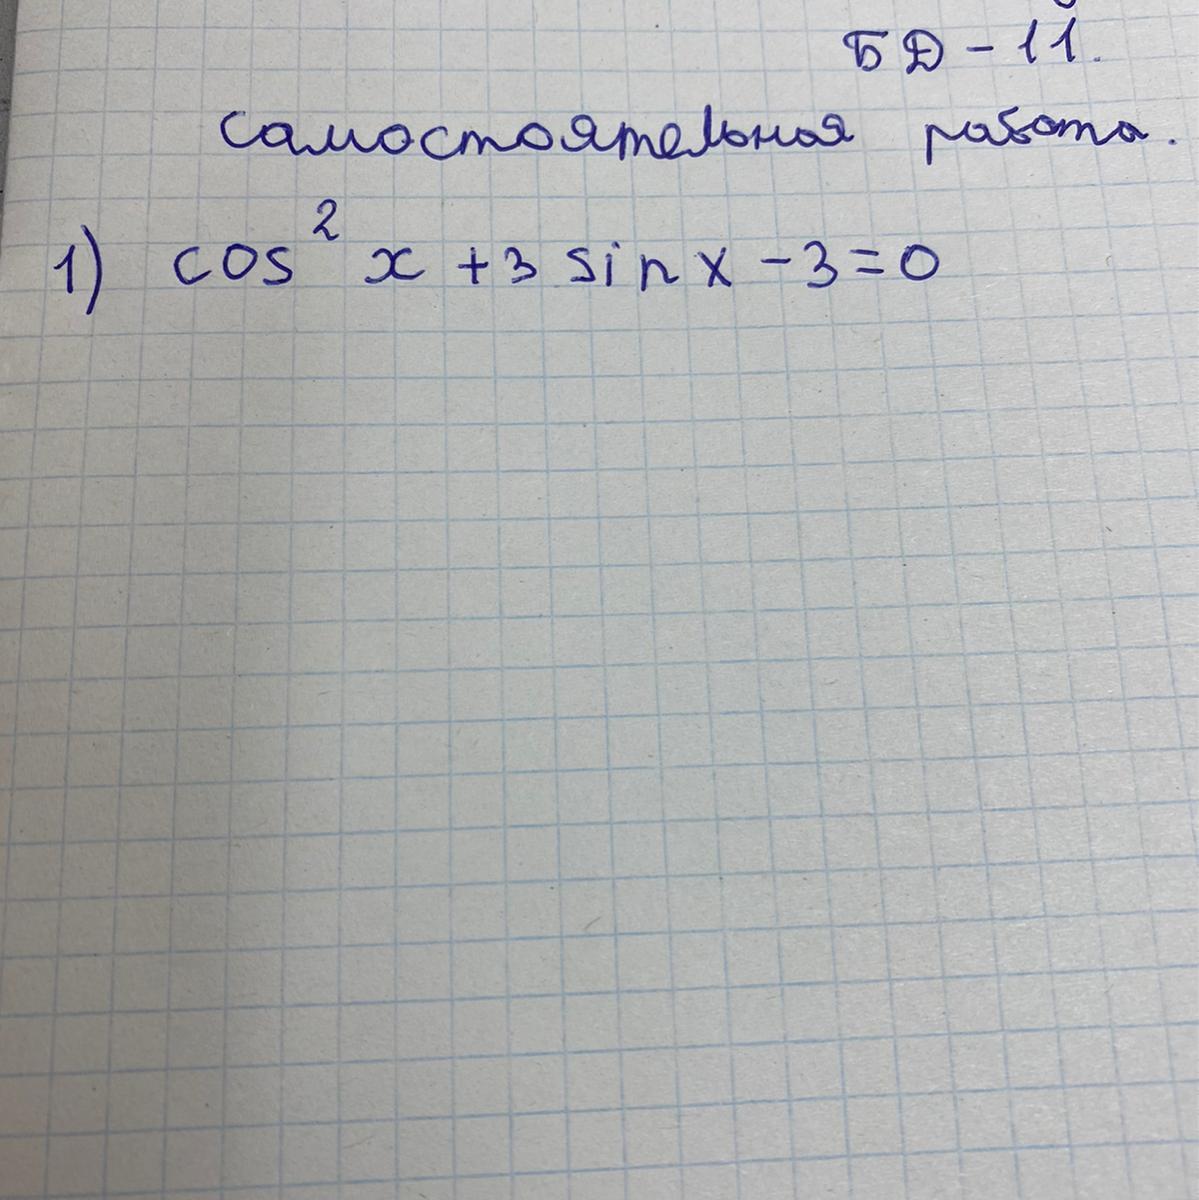 БД - 11.
самостоятельная работа.
1) cos² x + 3 sin x - 3 = 0